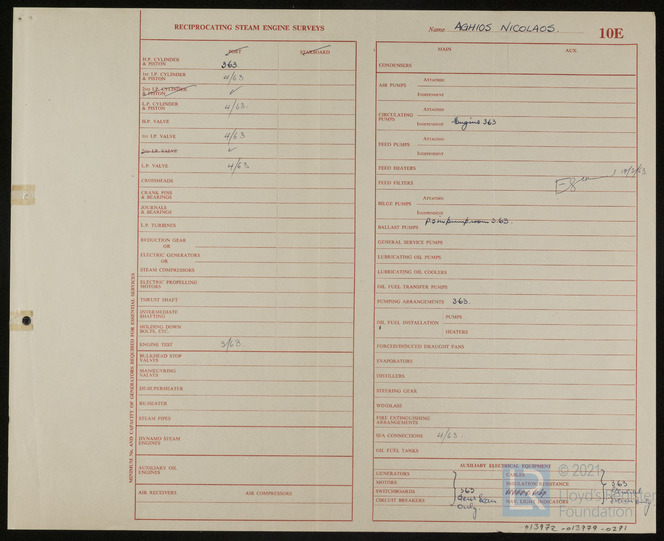 RECIPROCATING STEAM ENGINE SURVEYS
PORT
STARBOARD
H.P. CYLINDER & PISTON 363
1ST I.P. CYLINDER & PISTON 4/63
2ND I.P. CYLINDER & PISTON ✓
L.P. CYLINDER & PISTON 4/63.
H.P. VALVE
1ST I.P. VALVE 4/63
2ND I.P. VALVE ✓
L.P. VALVE 4/63
CROSSHEADS
CRANK PINS & BEARINGS
JOURNALS & BEARINGS
L.P. TURBINES
REDUCTION GEAR
OR
ELECTRIC GENERATORS
OR
STEAM COMPRESSORS
ELECTRIC PROPELLING MOTORS
THRUST SHAFT
INTERMEDIATE SHAFTING
HOLDING DOWN BOLTS, ETC.
ENGINE TEST 3/63
BULKHEAD STOP VALVES
MANŒUVRING VALVES
DE-SUPERHEATER
RE-HEATER
STEAM PIPES
DYNAMO STEAM ENGINES
AUXILIARY OIL ENGINES
AIR RECEIVERS AIR COMPRESSORS
MINIMUM No. AND CAPACITY OF GENERATORS REQUIRED FOR ESSENTIAL SERVICES
Name AGHIOS NICOLAOS. 10E
MAIN AUX.
CONDENSERS
AIR PUMPS
ATTACHED
INDEPENDENT
CIRCULATING PUMPS
ATTACHED
INDEPENDENT Engine 363
FEED PUMPS
ATTACHED
INDEPENDENT
FEED HEATERS
FEED FILTERS
BILGE PUMPS
ATTACHED
INDEPENDENT
BALLAST PUMPS
GENERAL SERVICE PUMPS
LUBRICATING OIL PUMPS
LUBRICATING OIL COOLERS
OIL FUEL TRANSFER PUMPS
PUMPING ARRANGEMENTS 363.
OIL FUEL INSTALLATION
PUMPS
HEATERS
FORCED/INDUCED DRAUGHT FANS
EVAPORATORS
DISTILLERS
STEERING GEAR
WINDLASS
FIRE EXTINGUISHING ARRANGEMENTS
SEA CONNECTIONS 4/63.
OIL FUEL TANKS
AUXILIARY ELECTRICAL EQUIPMENT
GENERATORS CABLES
MOTORS INSULATION RESISTANCE 363
SWITCHBOARDS 363
CIRCUIT BREAKERS only NAV. LIGHT INDICATORS
© 2021
LR
Lloyd's Register
Foundation
013972-013979-0291